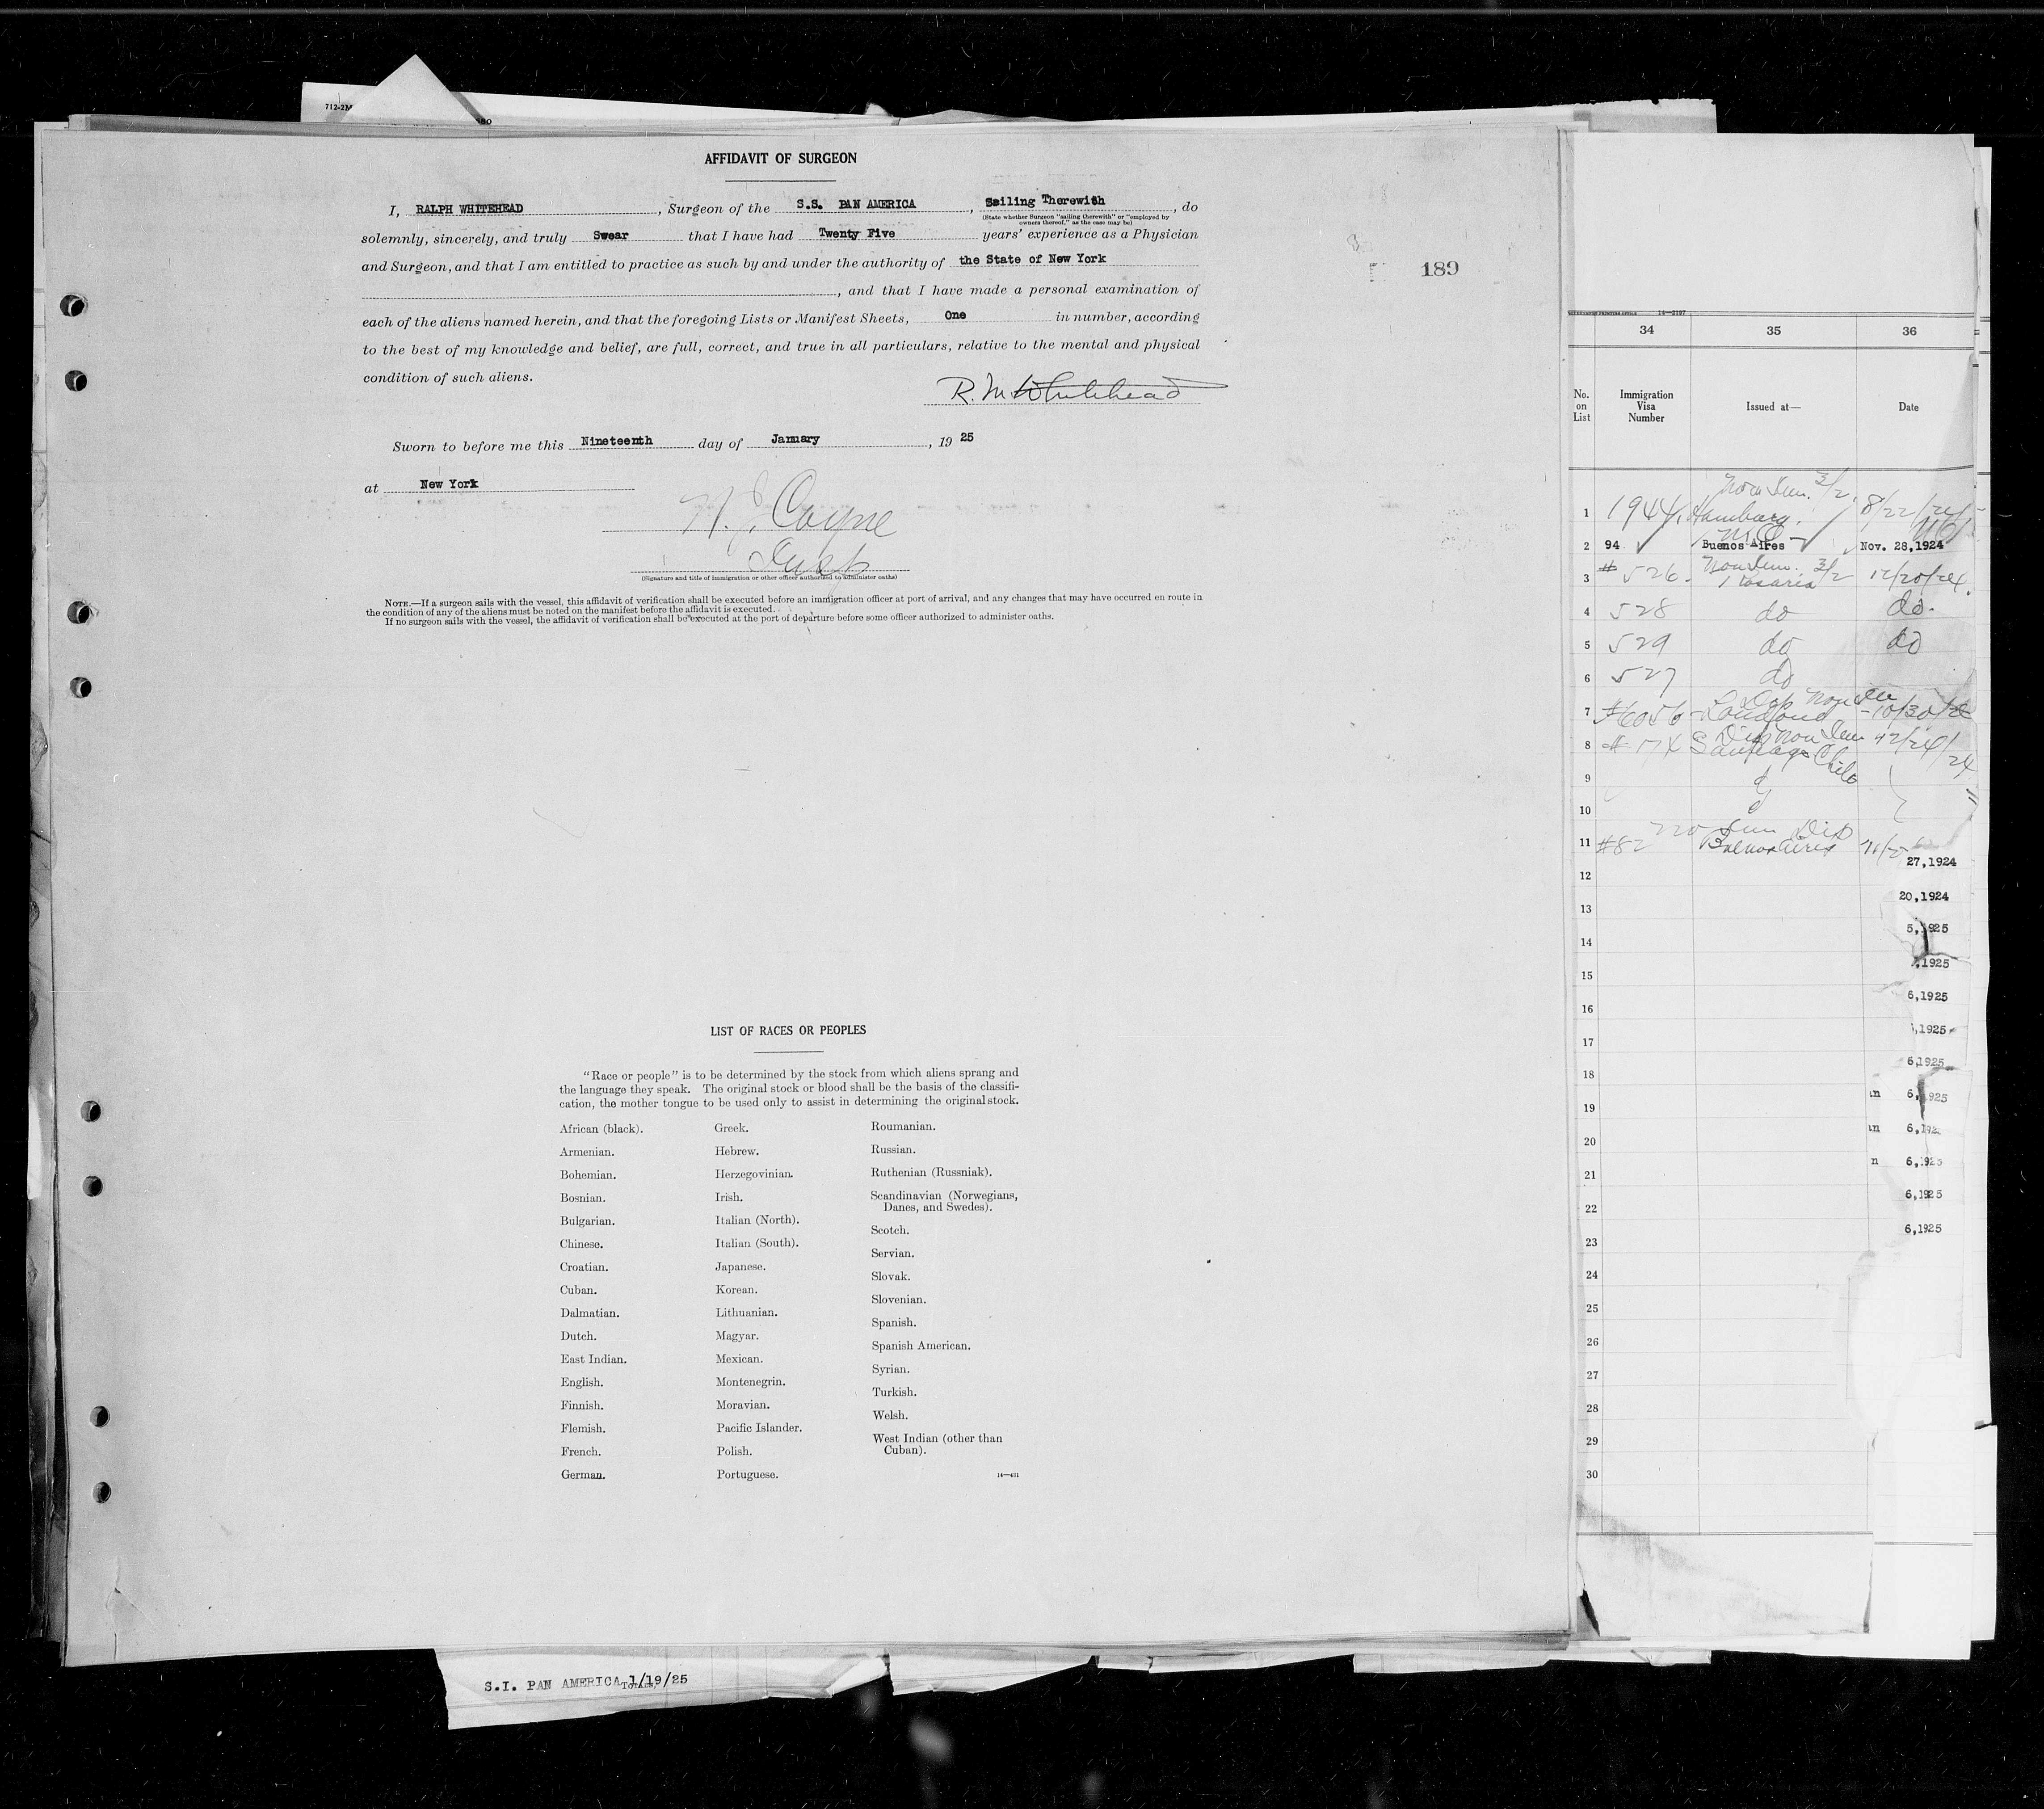 712-2M
AFFIDAVIT OF SURGEON
I, RALPH WHITEHEAD, Surgeon of the S.S. PAN AMERICA, Sailing Therewith, do
(State whether Surgeon "sailing therewith" or "employed by
owners thereof," as the case may be)
solemnly, sincerely, and truly Swear that I have had Twenty Five years' experience as a Physician
and Surgeon, and that I am entitled to practice as such by and under the authority of the State of New York
, and that I have made a personal examination of
each of the aliens named herein, and that the foregoing Lists or Manifest Sheets, One in number, according
to the best of my knowledge and belief, are full, correct, and true in all particulars, relative to the mental and physical
condition of such aliens.
R. M. Whitehead
Sworn to before me this Nineteenth day of January, 19 25
at New York
N. J. Coyne
Insp
(Signature and title of immigration or other officer authorized to administer oaths)
NOTE.—If a surgeon sails with the vessel, this affidavit of verification shall be executed before an immigration officer at port of arrival, and any changes that may have occurred en route in
the condition of any of the aliens must be noted on the manifest before the affidavit is executed.
If no surgeon sails with the vessel, the affidavit of verification shall be executed at the port of departure before some officer authorized to administer oaths.
189
LIST OF RACES OR PEOPLES
"Race or people" is to be determined by the stock from which aliens sprang and
the language they speak. The original stock or blood shall be the basis of the classifi-
cation, the mother tongue to be used only to assist in determining the original stock.
African (black).
Armenian.
Bohemian.
Bosnian.
Bulgarian.
Chinese.
Croatian.
Cuban.
Dalmatian.
Dutch.
East Indian.
English.
Finnish.
Flemish.
French.
German.
Greek.
Hebrew.
Herzegovinian.
Irish.
Italian (North).
Italian (South).
Japanese.
Korean.
Lithuanian.
Magyar.
Mexican.
Montenegrin.
Moravian.
Pacific Islander.
Polish.
Portuguese.
Roumanian.
Russian.
Ruthenian (Russniak).
Scandinavian (Norwegians,
Danes, and Swedes).
Scotch.
Servian.
Slovak.
Slovenian.
Spanish.
Spanish American.
Syrian.
Turkish.
Welsh.
West Indian (other than
Cuban).
14—431
S.I. PAN AMERICA 1/19/25
14—2197
34 35 36
No.
on
List
Immigration
Visa
Number
Issued at—
Date
Non Imm. 3/2
1 1944 Hamburg. 8/22/24
2 94 Buenos Aires Nov. 28,1924
Non Imm. 3/2
3 # 526. Rosario 12/20/24.
4 528 do do.
5 529 do do
6 527 do
Dip Non Im
7 #6056 London 10/30/24
Dip Non Imm
8 # 174 Santiago Chile 12/24/24
9
10
Imm Dip
11 #82 Buenos Aires
27,1924
12
20,1924
13
5,1925
14
,1925
15
6,1925
16
,1925
17
6,1925
18
6,1925
19
6,192
20
6,1925
21
6,1925
22
6,1925
23
24
25
26
27
28
29
30